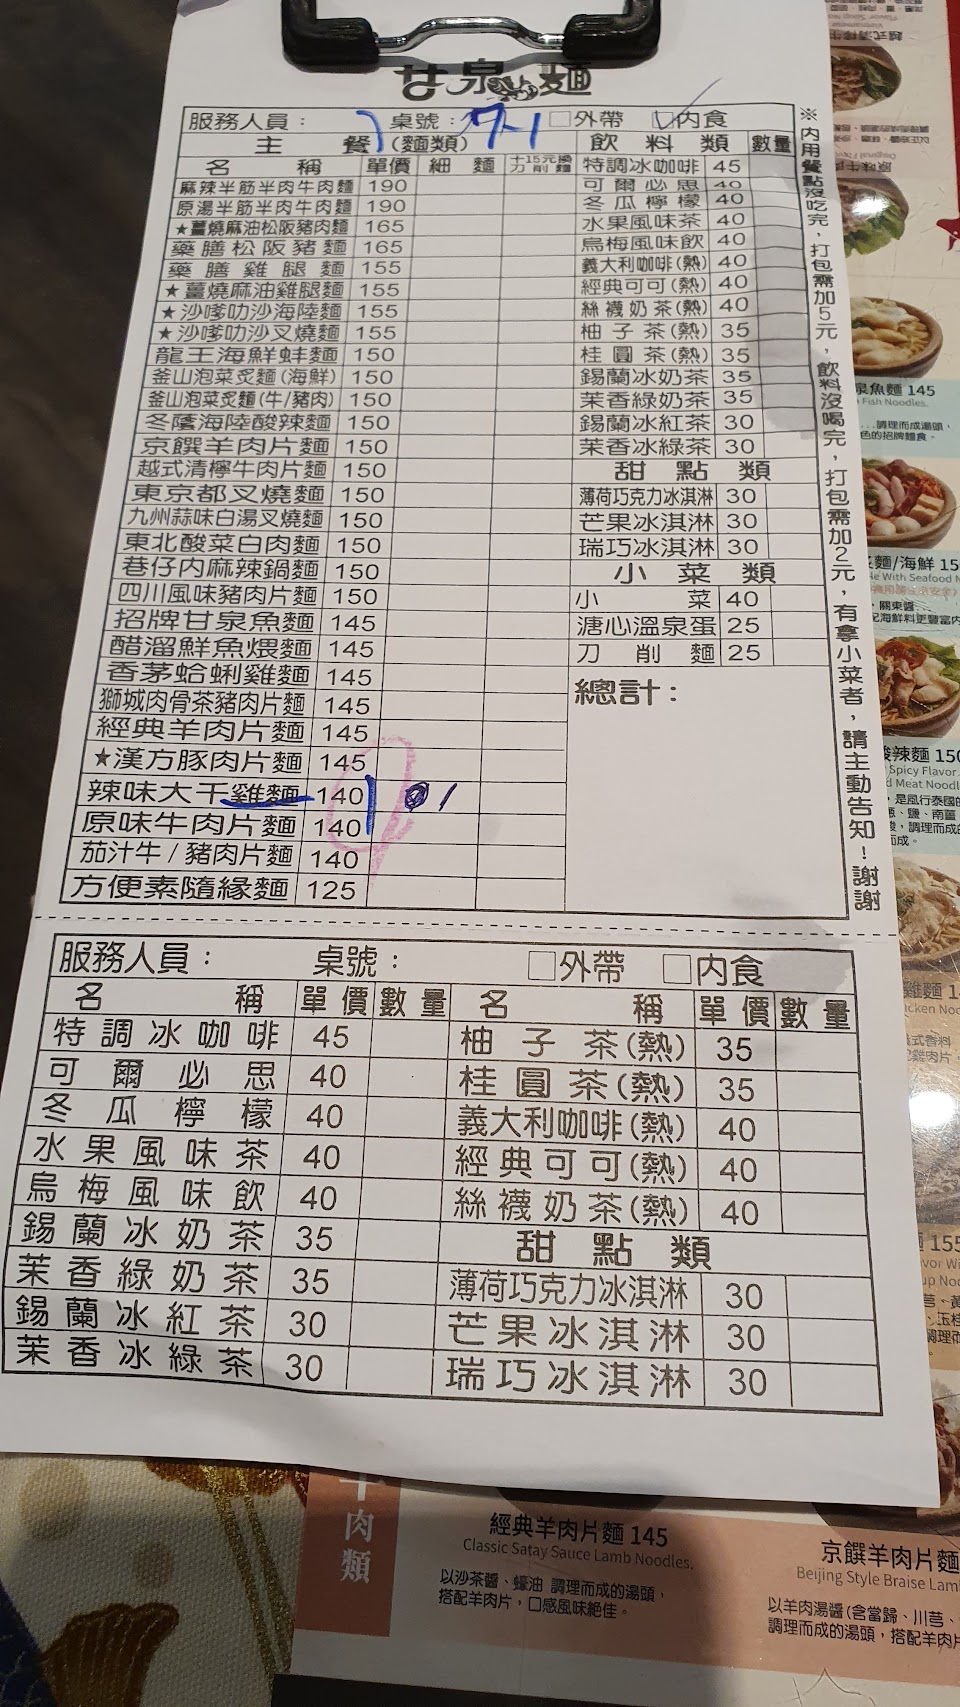 甘泉麵
服務人員：　桌號：7-1　□外帶　☑內食
主餐(麵類)　飲料類　數量
名稱　單價　細麵　十15元換刀削麵　特調冰咖啡　45
麻辣半筋半肉牛肉麵　190　可爾必思　40
原湯半筋半肉牛肉麵　190　冬瓜檸檬　40
★薑燒麻油松阪豬肉麵　165　水果風味茶　40
藥膳松阪豬麵　165　烏梅風味飲　40
藥膳雞腿麵　155　義大利咖啡(熱)　40
★薑燒麻油雞腿麵　155　經典可可(熱)　40
★沙嗲叻沙海陸麵　155　絲襪奶茶(熱)　40
★沙嗲叻沙叉燒麵　155　柚子茶(熱)　35
龍王海鮮蚌麵　150　桂圓茶(熱)　35
釜山泡菜炙麵(海鮮)　150　錫蘭冰奶茶　35
釜山泡菜炙麵(牛/豬肉)　150　茉香綠奶茶　35
冬蔭海陸酸辣麵　150　錫蘭冰紅茶　30
京饌羊肉片麵　150　茉香冰綠茶　30
越式清檸牛肉片麵　150　甜點類
東京都叉燒麵　150　薄荷巧克力冰淇淋　30
九州蒜味白湯叉燒麵　150　芒果冰淇淋　30
東北酸菜白肉麵　150　瑞巧冰淇淋　30
巷仔內麻辣鍋麵　150　小菜類
四川風味豬肉片麵　150　小菜　40
招牌甘泉魚麵　145　溏心溫泉蛋　25
醋溜鮮魚煨麵　145　刀削麵　25
香茅蛤蜊雞麵　145　總計：
獅城肉骨茶豬肉片麵　145
經典羊肉片麵　145
★漢方豚肉片麵　145
辣味大千雞麵　140　1
原味牛肉片麵　140
茄汁牛/豬肉片麵　140
方便素隨緣麵　125
※內用餐點沒吃完，打包需加5元，飲料沒喝完，打包需加2元，有拿小菜者，請主動告知！謝謝
服務人員：　桌號：　□外帶　□內食
名稱　單價　數量　名稱　單價　數量
特調冰咖啡　45　柚子茶(熱)　35
可爾必思　40　桂圓茶(熱)　35
冬瓜檸檬　40　義大利咖啡(熱)　40
水果風味茶　40　經典可可(熱)　40
烏梅風味飲　40　絲襪奶茶(熱)　40
錫蘭冰奶茶　35　甜點類
茉香綠奶茶　35　薄荷巧克力冰淇淋　30
錫蘭冰紅茶　30　芒果冰淇淋　30
茉香冰綠茶　30　瑞巧冰淇淋　30
泉魚麵 145
Fish Noodles.
調理而成湯頭，
色的招牌麵食。
麵/海鮮 15
With Seafood N
關東醬
配海鮮料更豐富
酸辣麵 150
Spicy Flavor
d Meat Noodl
是風行泰國的
調理而成的
而成。
雞麵 14
icken Noo
155
肉類
經典羊肉片麵 145
Classic Satay Sauce Lamb Noodles.
以沙茶醬、蠔油 調理而成的湯頭，
搭配羊肉片，口感風味絕佳。
京饌羊肉片麵
Beijing Style Braise Lam
以羊肉湯醬(含當歸、川芎、
調理而成的湯頭，搭配羊肉片